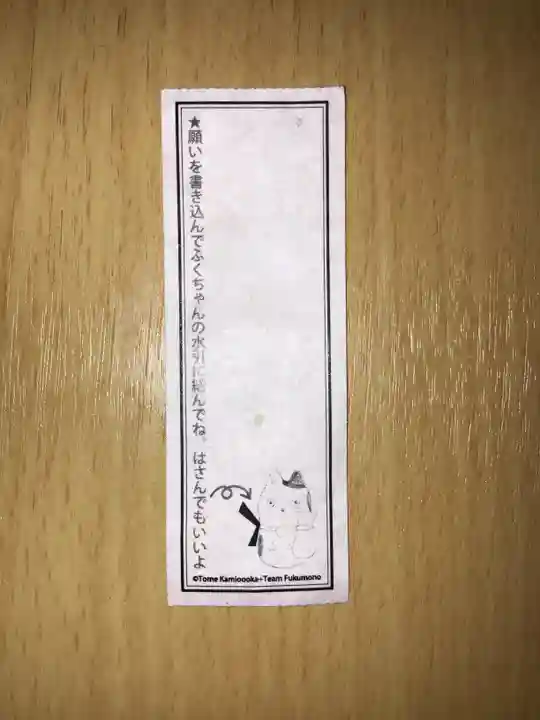 ★願いを書き込んでふくちゃんの水引に結んでね。はさんでもいいよ
©Tome Kamioooka+Team Fukumono